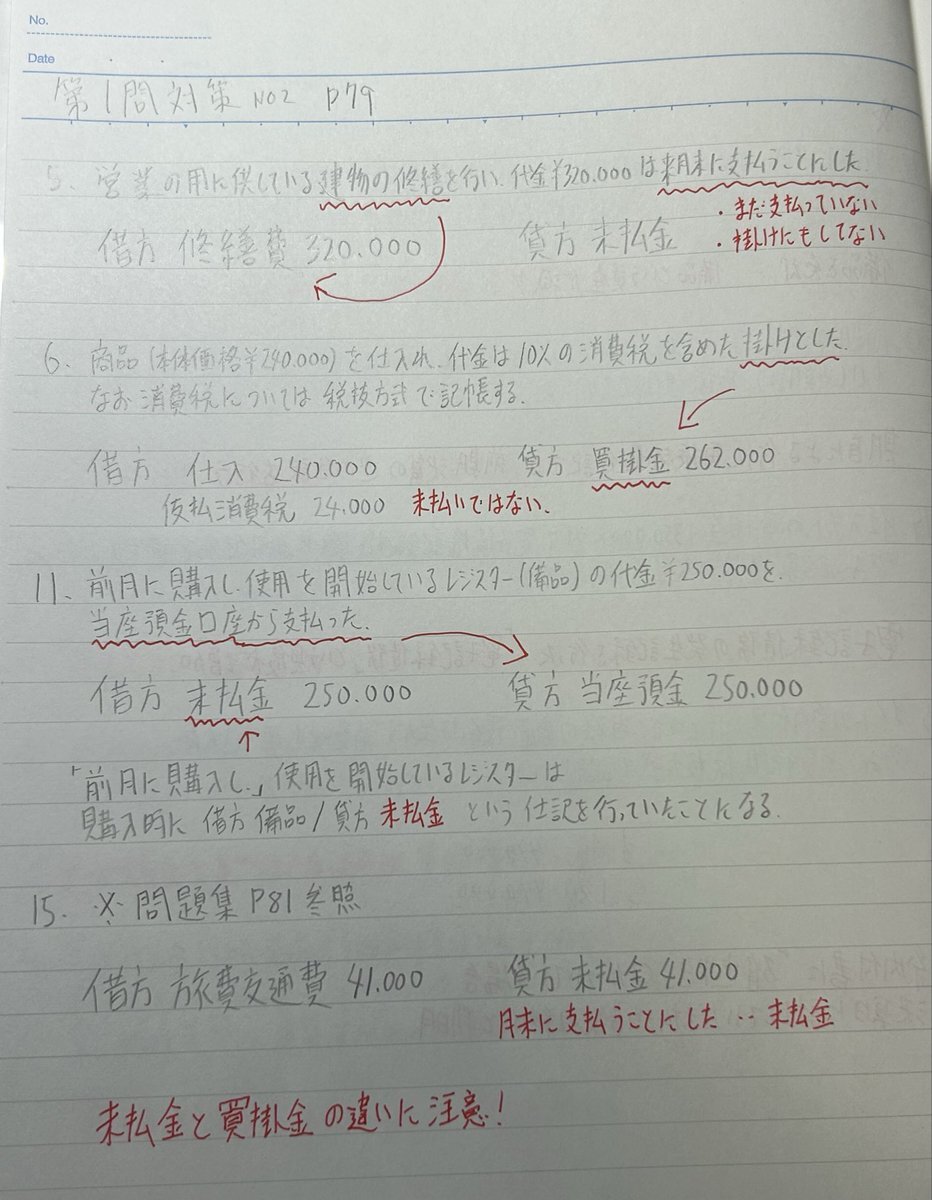 No.
Date
第1問対策 NO2 P79
5、営業の用に供している建物の修繕を行い、代金¥320.000は来月末に支払うことにした.
・まだ支払っていない
借方 修繕費 320.000 貸方 未払金 ・掛けにもしてない
6、商品(本体価格¥240.000)を仕入れ、代金は10%の消費税を含めた掛けとした.
なお消費税については税抜方式で記帳する.
借方 仕入 240.000 貸方 買掛金 262.000
仮払消費税 24.000 未払いではない、
11、前月に購入し、使用を開始しているレジスター(備品)の代金¥250.000を、
当座預金口座から支払った.
借方 未払金 250.000 貸方 当座預金 250.000
「前月に購入し、」使用を開始しているレジスターは
購入時に 借方 備品/貸方 未払金 という仕記を行っていたことになる.
15. ※問題集P81参照
借方 旅費交通費 41.000 貸方 未払金 41.000
月末に支払うことにした‥未払金
未払金と買掛金の違いに注意!